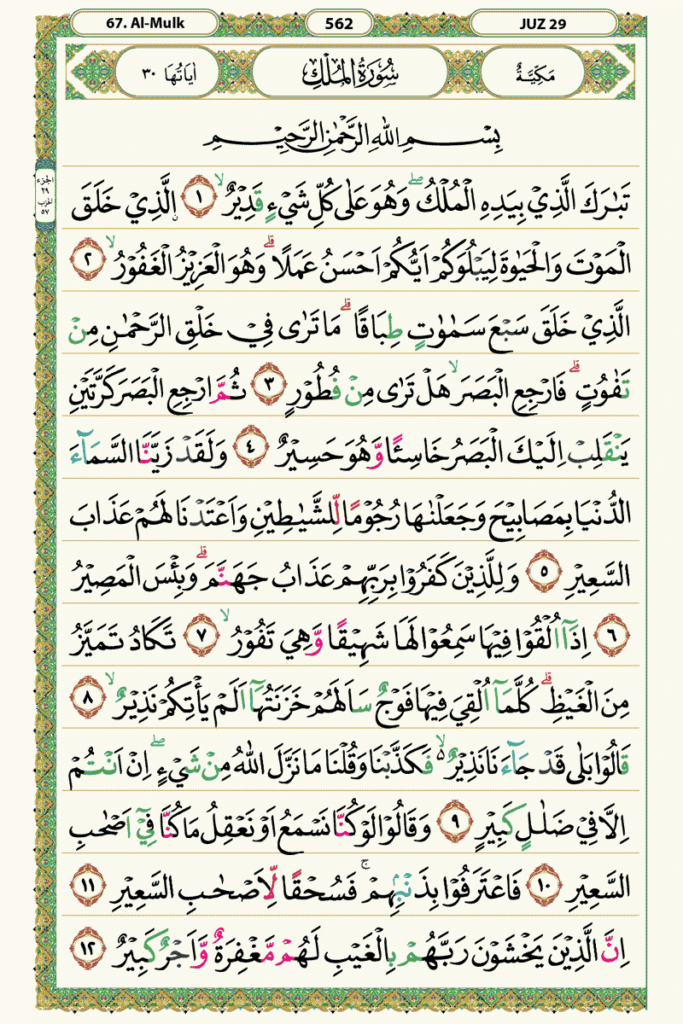 67. Al-Mulk 562 JUZ 29
مَكِّيَّةٌ سُوْرَةُ الْمُلْكِ اٰيَاتُهَا ٣٠
بِسْــــمِ اللّٰهِ الرَّحْمٰنِ الرَّحِيْـــمِ
الجزء
٢٩
الحزب
٥٧
تَبٰرَكَ الَّذِيْ بِيَدِهِ الْمُلْكُۖ وَهُوَ عَلٰى كُلِّ شَيْءٍ قَدِيْرٌۙ ١ ۨالَّذِيْ خَلَقَ
الْمَوْتَ وَالْحَيٰوةَ لِيَبْلُوَكُمْ اَيُّكُمْ اَحْسَنُ عَمَلًاۗ وَهُوَ الْعَزِيْزُ الْغَفُوْرُۙ ٢
الَّذِيْ خَلَقَ سَبْعَ سَمٰوٰتٍ طِبَاقًاۗ مَا تَرٰى فِيْ خَلْقِ الرَّحْمٰنِ مِنْ
تَفٰوُتٍۗ فَارْجِعِ الْبَصَرَۙ هَلْ تَرٰى مِنْ فُطُوْرٍ ٣ ثُمَّ ارْجِعِ الْبَصَرَ كَرَّتَيْنِ
يَنْقَلِبْ اِلَيْكَ الْبَصَرُ خَاسِئًا وَّهُوَ حَسِيْرٌ ٤ وَلَقَدْ زَيَّنَّا السَّمَاۤءَ
الدُّنْيَا بِمَصَابِيْحَ وَجَعَلْنٰهَا رُجُوْمًا لِّلشَّيٰطِيْنِ وَاَعْتَدْنَا لَهُمْ عَذَابَ
السَّعِيْرِ ٥ وَلِلَّذِيْنَ كَفَرُوْا بِرَبِّهِمْ عَذَابُ جَهَنَّمَۗ وَبِئْسَ الْمَصِيْرُ
٦ اِذَآ اُلْقُوْا فِيْهَا سَمِعُوْا لَهَا شَهِيْقًا وَّهِيَ تَفُوْرُۙ ٧ تَكَادُ تَمَيَّزُ
مِنَ الْغَيْظِۗ كُلَّمَآ اُلْقِيَ فِيْهَا فَوْجٌ سَاَلَهُمْ خَزَنَتُهَآ اَلَمْ يَأْتِكُمْ نَذِيْرٌۙ ٨
قَالُوْا بَلٰى قَدْ جَاۤءَنَا نَذِيْرٌ ەۙ فَكَذَّبْنَا وَقُلْنَا مَا نَزَّلَ اللّٰهُ مِنْ شَيْءٍۖ اِنْ اَنْتُمْ
اِلَّا فِيْ ضَلٰلٍ كَبِيْرٍ ٩ وَقَالُوْا لَوْ كُنَّا نَسْمَعُ اَوْ نَعْقِلُ مَا كُنَّا فِيْٓ اَصْحٰبِ
السَّعِيْرِ ١٠ فَاعْتَرَفُوْا بِذَنْۢبِهِمْۚ فَسُحْقًا لِّاَصْحٰبِ السَّعِيْرِ ١١
اِنَّ الَّذِيْنَ يَخْشَوْنَ رَبَّهُمْ بِالْغَيْبِ لَهُمْ مَّغْفِرَةٌ وَّاَجْرٌ كَبِيْرٌ ١٢